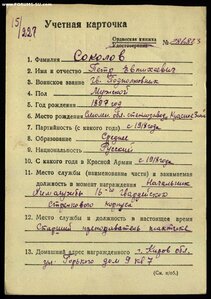 FORUMS-SU.com
15/227
Учетная карточка
Орденская книжка
Удостоверение №
1. Фамилия Соколов
2. Имя и отчество Петр Евтихиевич
3. Воинское звание Гв. Подполковник
4. Пол Мужской
5. Год рождения 1897 год
6. Место рождения Смолен. обл.
7. Партийность (с какого года) с 1918 года
8. Образование Среднее
9. Национальность Русский
10. С какого года в Красной Армии с 1918 года
11. Место службы (наименование части) и занимаемая
должность в момент награждения Начальник
16-го Гвардейского
Стрелкового корпуса
12. Место службы и должность в настоящее время
Старший преподаватель тактики
13. Домашний адрес награжденного г. Киров обл.
ул. Горького дом 9 кв 7
(См. н/об.)